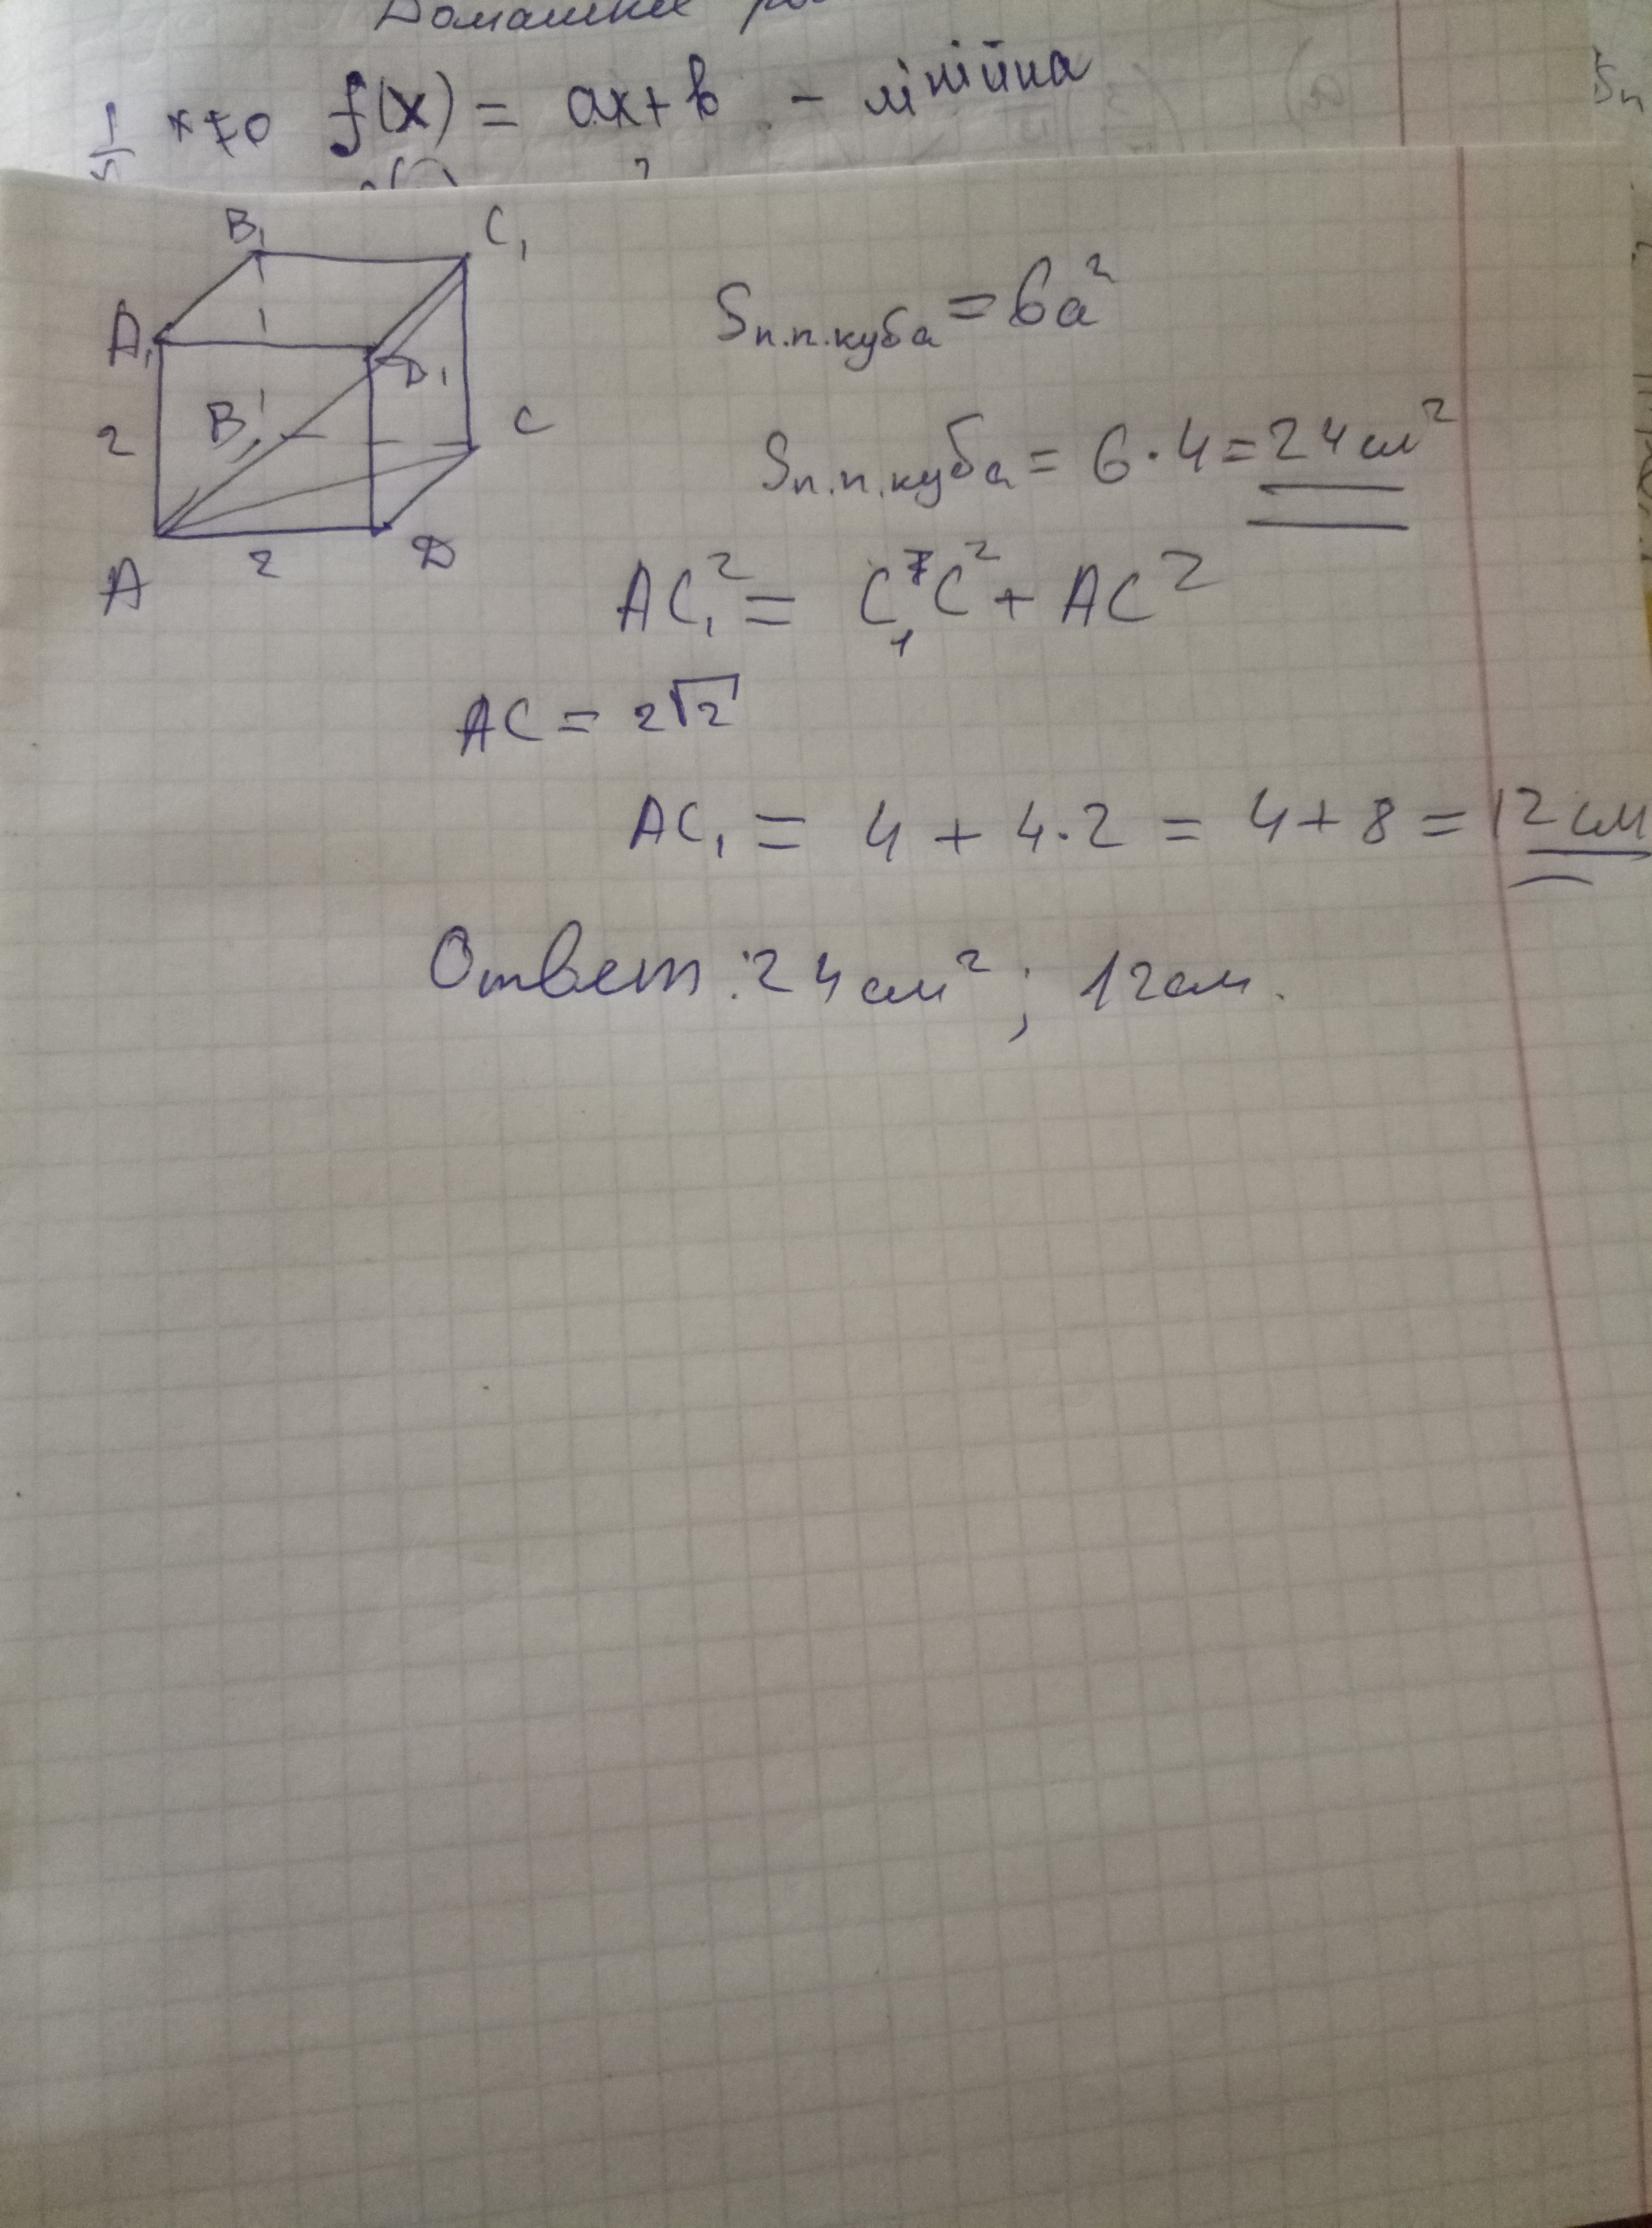 Домашнее
1 x≠0 f(x) = ax + b - лінійна
B₁ C₁
A₁ D₁
2 B C
A 2 D
Sп.п.куба = 6a²
Sп.п.куба = 6·4 = 24 см²
AC₁² = C₁C² + AC²
AC = 2√2
AC₁ = 4 + 4·2 = 4 + 8 = 12 см
Ответ: 24 см²; 12 см.
Sп